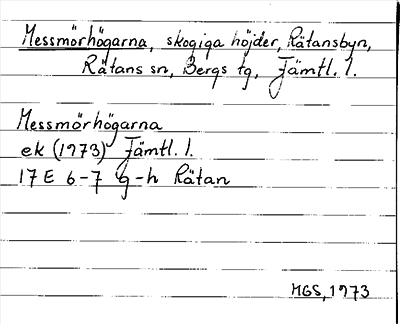 Messmörhögarna, skogiga höjder, Rätansbyn,
Rätans sn, Bergs tg, Jämtl. l.
Messmörhögarna
ek (1973) Jämtl. l.
17E 6-7 g-h Rätan
MGS, 1973